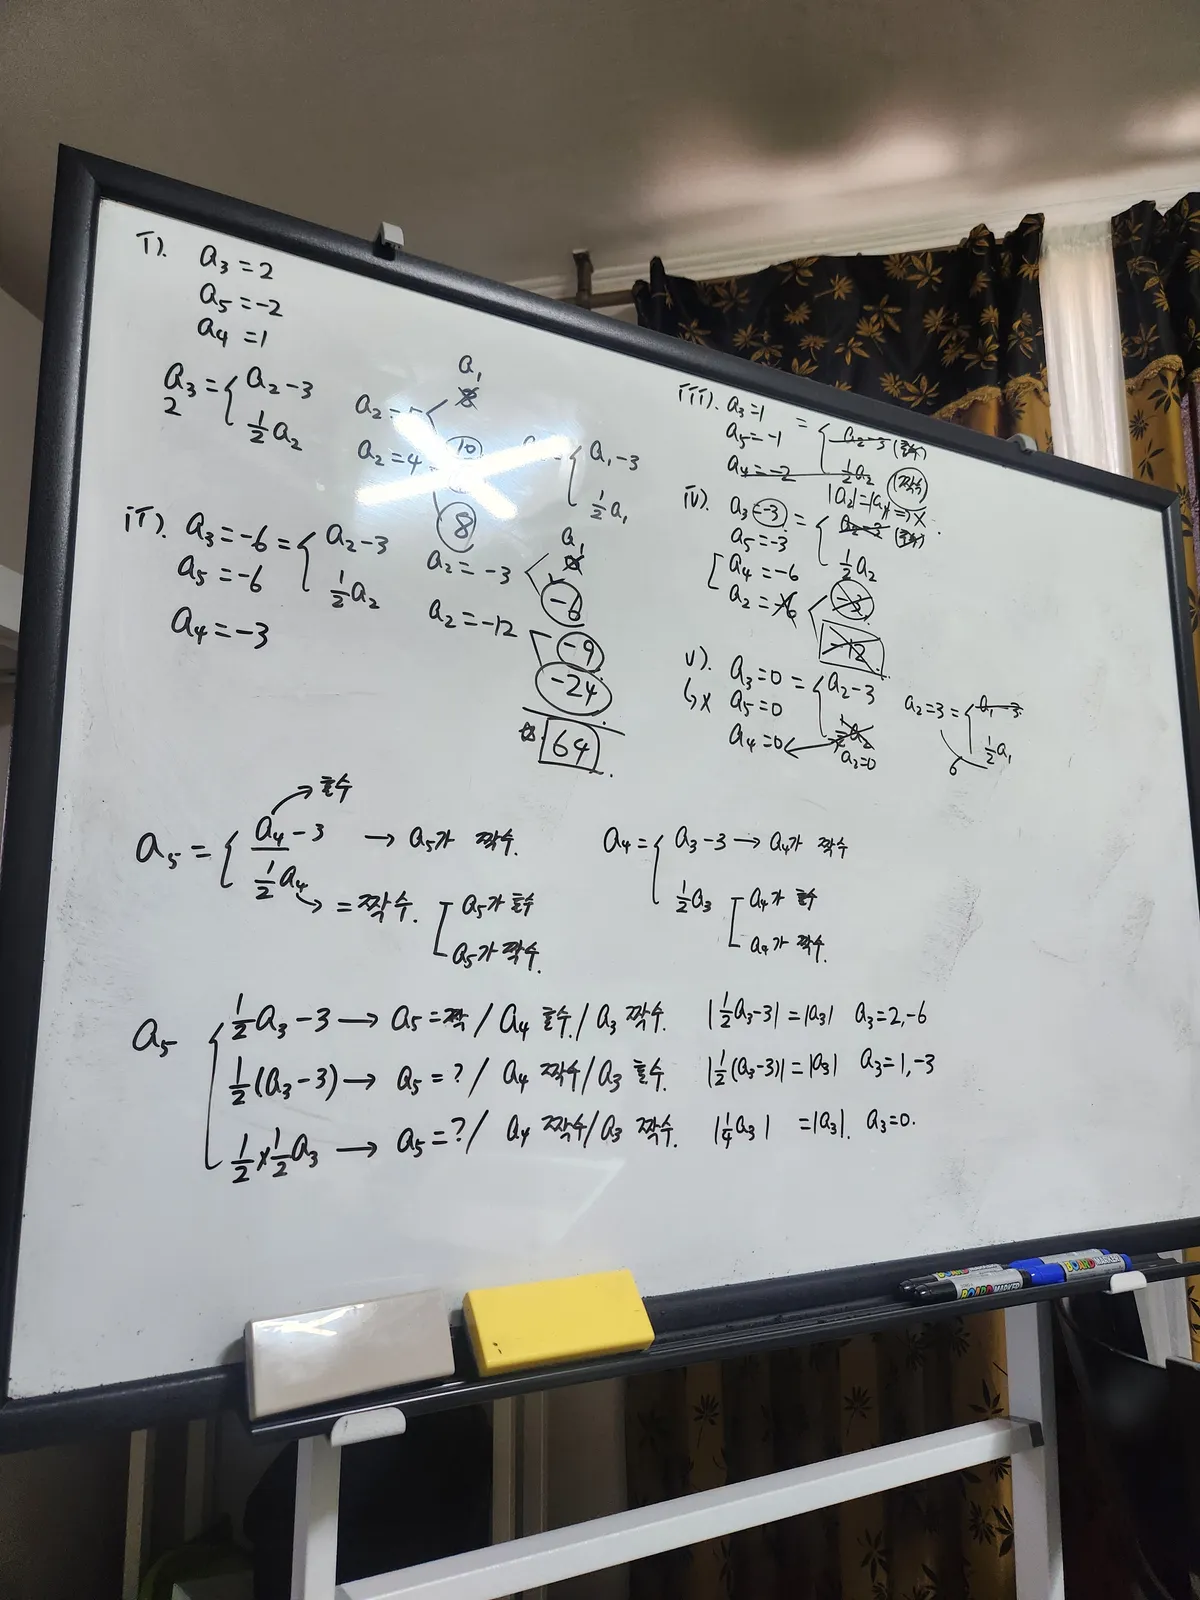 i).
a₃ = 2
a₅ = -2
a₄ = 1
a₃ = { a₂ - 3
2
½a₂
a₁
a₂ =
10
a₂ = 4
8
a₁ - 3
½a₁
ii). a₃ = -6 = { a₂ - 3
½a₂
a₅ = -6
a₄ = -3
a₂ = -3
a₁
-6
a₂ = -12
-9
-24
64
iii). a₃ = 1 = { a₂ - 3 (홀수)
½a₂ (짝수)
a₅ = -1
a₄ = -2
|a₂| = |a₄| ⇒ X
iv). a₃ = -3 = { a₂ - 3 (홀수)
½a₂
a₅ = -3
a₄ = -6
a₂ = -6
-3
-12
v). a₃ = 0 = { a₂ - 3
½a₂
↳ X a₅ = 0
a₄ = 0
a₂ = 0
a₂ = 3 = { a₁ - 3
½a₁
6
→ 홀수
a₅ = { a₄ - 3 → a₅가 짝수.
½a₄ → = 짝수. [ a₅가 홀수
a₅가 짝수.
a₄ = { a₃ - 3 → a₄가 짝수
½a₃ [ a₄가 홀수
a₄가 짝수.
a₅ { ½a₃ - 3 → a₅ = 짝 / a₄ 홀수 / a₃ 짝수. |½a₃ - 3| = |a₃| a₃ = 2, -6
½(a₃ - 3) → a₅ = ? / a₄ 짝수 / a₃ 홀수. |½(a₃ - 3)| = |a₃| a₃ = 1, -3
½ × ½a₃ → a₅ = ? / a₄ 짝수 / a₃ 짝수. |¼a₃| = |a₃|. a₃ = 0.
BOARD MARKER
BOARD MARKER
BOARD MARKER